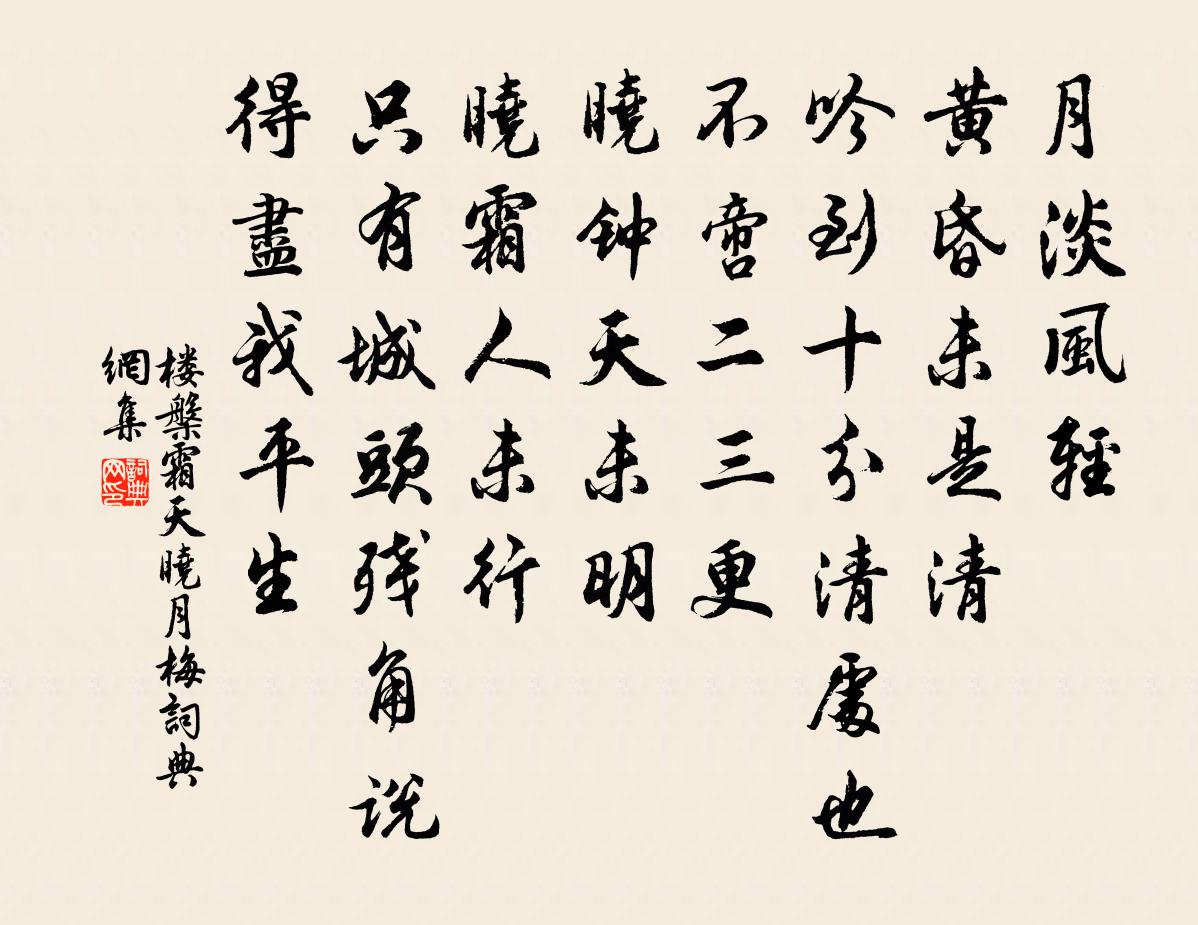 月淡風輕
黄昏未是清
吟到十分清處也
不啻二三更
曉钟天未明
曉霜人未行
只有城頭残角说
得盡我平生
楼槃霜天曉月梅詞典
網集
詞典
网印